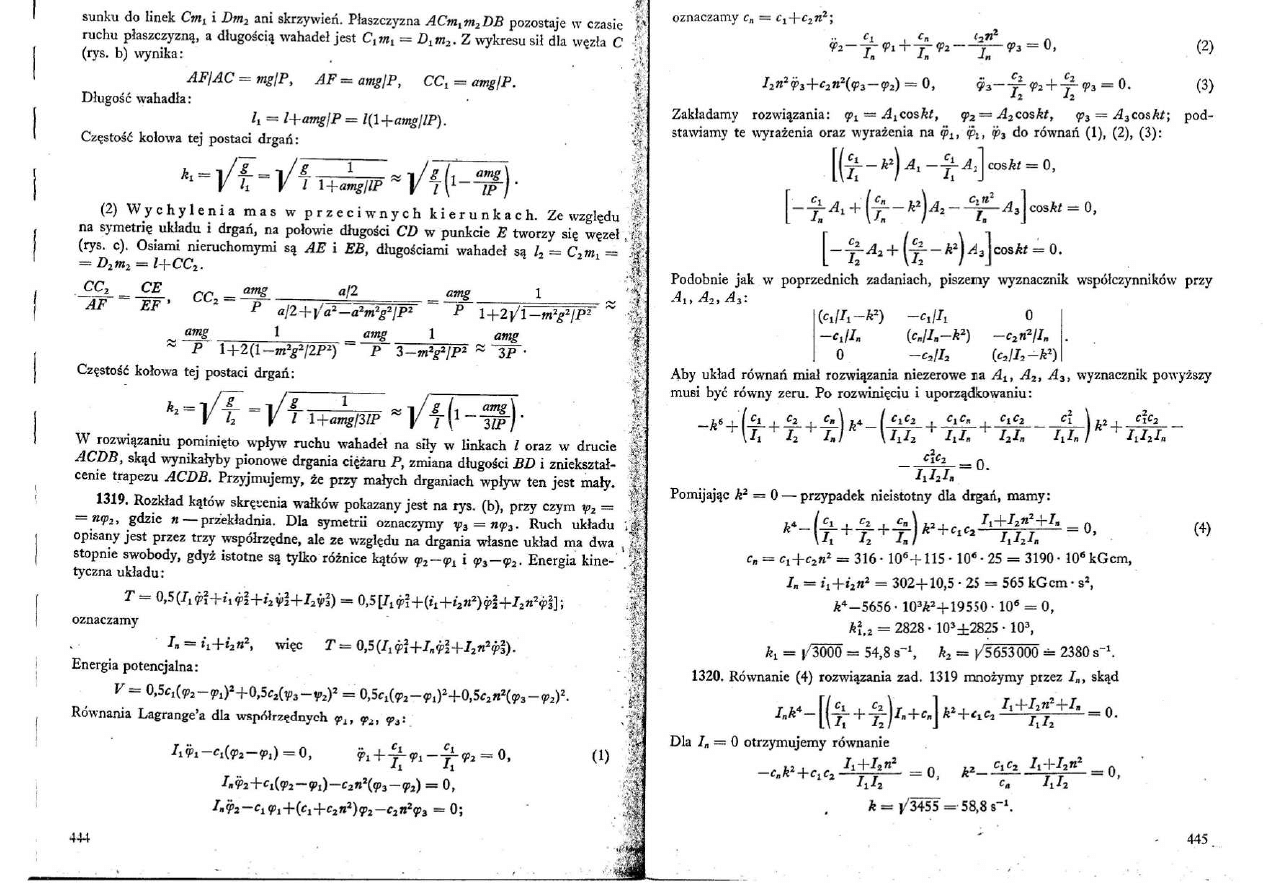 sunku do linek Cm₁ i Dm₂ ani skrzywień. Płaszczyzna ACm₁m₂DB pozostaje w czasie
ruchu płaszczyzną, a długością wahadeł jest C₁m₁ = D₁m₂. Z wykresu sił dla węzła C
(rys. b) wynika:
AF/AC = mg/P, AF = amg/P, CC₁ = amg/P.
Długość wahadła:
l₁ = l+amg/P = l(1+amg/lP).
Częstość kołowa tej postaci drgań:
k₁ = √(g/l₁) = √(g/l · 1/(1+amg/lP)) ≈ √(g/l (1−amg/lP)).
(2) Wychylenia mas w przeciwnych kierunkach. Ze względu
na symetrię układu i drgań, na połowie długości CD w punkcie E tworzy się węzeł
(rys. c). Osiami nieruchomymi są AE i EB, długościami wahadeł są l₂ = C₂m₁ =
= D₂m₂ = l+CC₂.
CC₂/AF = CE/EF, CC₂ = amg/P · (a/2)/(a/2+√(a²−a²m²g²/P²)) = amg/P · 1/(1+2√(1−m²g²/P²)) ≈
≈ amg/P · 1/(1+2(1−m²g²/2P²)) = amg/P · 1/(3−m²g²/P²) ≈ amg/3P.
Częstość kołowa tej postaci drgań:
k₂ = √(g/l₂) = √(g/l · 1/(1+amg/3lP)) ≈ √(g/l (1−amg/3lP)).
W rozwiązaniu pominięto wpływ ruchu wahadeł na siły w linkach l oraz w drucie
ACDB, skąd wynikałyby pionowe drgania ciężaru P, zmiana długości BD i zniekształ-
cenie trapezu ACDB. Przyjmujemy, że przy małych drganiach wpływ ten jest mały.
1319. Rozkład kątów skręcenia wałków pokazany jest na rys. (b), przy czym ψ₂ =
= nφ₂, gdzie n — przekładnia. Dla symetrii oznaczymy ψ₃ = nφ₃. Ruch układu
opisany jest przez trzy współrzędne, ale ze względu na drgania własne układ ma dwa
stopnie swobody, gdyż istotne są tylko różnice kątów φ₂−φ₁ i φ₃−φ₂. Energia kine-
tyczna układu:
T = 0,5(I₁φ̇₁²+i₁φ̇₂²+i₂ψ̇₂²+I₂ψ̇₃²) = 0,5[I₁φ̇₁²+(i₁+i₂n²)φ̇₂²+I₂n²φ̇₃²];
oznaczamy
Iₙ = i₁+i₂n², więc T = 0,5(I₁φ̇₁²+Iₙφ̇₂²+I₂n²φ̇₃²).
Energia potencjalna:
V = 0,5c₁(φ₂−φ₁)²+0,5c₂(ψ₃−ψ₂)² = 0,5c₁(φ₂−φ₁)²+0,5c₂n²(φ₃−φ₂)².
Równania Lagrange'a dla współrzędnych φ₁, φ₂, φ₃:
I₁φ̈₁−c₁(φ₂−φ₁) = 0, φ̈₁+c₁/I₁ φ₁−c₁/I₁ φ₂ = 0, (1)
Iₙφ̈₂+c₁(φ₂−φ₁)−c₂n²(φ₃−φ₂) = 0,
Iₙφ̈₂−c₁φ₁+(c₁+c₂n²)φ₂−c₂n²φ₃ = 0;
444
oznaczamy cₙ = c₁+c₂n²;
φ̈₂−c₁/Iₙ φ₁+cₙ/Iₙ φ₂−c₂n²/Iₙ φ₃ = 0, (2)
I₂n²φ̈₃+c₂n²(φ₃−φ₂) = 0, φ̈₃−c₂/I₂ φ₂+c₂/I₂ φ₃ = 0. (3)
Zakładamy rozwiązania: φ₁ = A₁coskt, φ₂ = A₂coskt, φ₃ = A₃coskt; pod-
stawiamy te wyrażenia oraz wyrażenia na φ̈₁, φ̈₁, φ̈₃ do równań (1), (2), (3):
[(c₁/I₁−k²)A₁−c₁/I₁ A₂]coskt = 0,
[−c₁/Iₙ A₁+(cₙ/Iₙ−k²)A₂−c₂n²/Iₙ A₃]coskt = 0,
[−c₂/I₂ A₂+(c₂/I₂−k²)A₃]coskt = 0.
Podobnie jak w poprzednich zadaniach, piszemy wyznacznik współczynników przy
A₁, A₂, A₃:
|(c₁/I₁−k²) −c₁/I₁ 0|
|−c₁/Iₙ (cₙ/Iₙ−k²) −c₂n²/Iₙ|.
|0 −c₂/I₂ (c₂/I₂−k²)|
Aby układ równań miał rozwiązania niezerowe na A₁, A₂, A₃, wyznacznik powyższy
musi być równy zeru. Po rozwinięciu i uporządkowaniu:
−k⁶+(c₁/I₁+c₂/I₂+cₙ/Iₙ)k⁴−(c₁c₂/I₁I₂+c₁cₙ/I₁Iₙ+c₁c₂/I₂Iₙ−c₁²/I₁Iₙ)k²+c₁²c₂/I₁I₂Iₙ−
−c₁²c₂/I₁I₂Iₙ = 0.
Pomijając k² = 0 — przypadek nieistotny dla drgań, mamy:
k⁴−(c₁/I₁+c₂/I₂+cₙ/Iₙ)k²+c₁c₂ (I₁+I₂n²+Iₙ)/I₁I₂Iₙ = 0, (4)
cₙ = c₁+c₂n² = 316 · 10⁶+115 · 10⁶ · 25 = 3190 · 10⁶ kGcm,
Iₙ = i₁+i₂n² = 302+10,5 · 25 = 565 kGcm · s²,
k⁴−5656 · 10³k²+19550 · 10⁶ = 0,
k²₁,₂ = 2828 · 10³±2825 · 10³,
k₁ = √3000 = 54,8 s⁻¹, k₂ = √5653000 ≐ 2380 s⁻¹.
1320. Równanie (4) rozwiązania zad. 1319 mnożymy przez Iₙ, skąd
Iₙk⁴−[(c₁/I₁+c₂/I₂)Iₙ+cₙ]k²+c₁c₂ (I₁+I₂n²+Iₙ)/I₁I₂ = 0.
Dla Iₙ = 0 otrzymujemy równanie
−cₙk²+c₁c₂ (I₁+I₂n²)/I₁I₂ = 0, k²−c₁c₂/cₙ · (I₁+I₂n²)/I₁I₂ = 0,
k = √3455 = 58,8 s⁻¹.
445